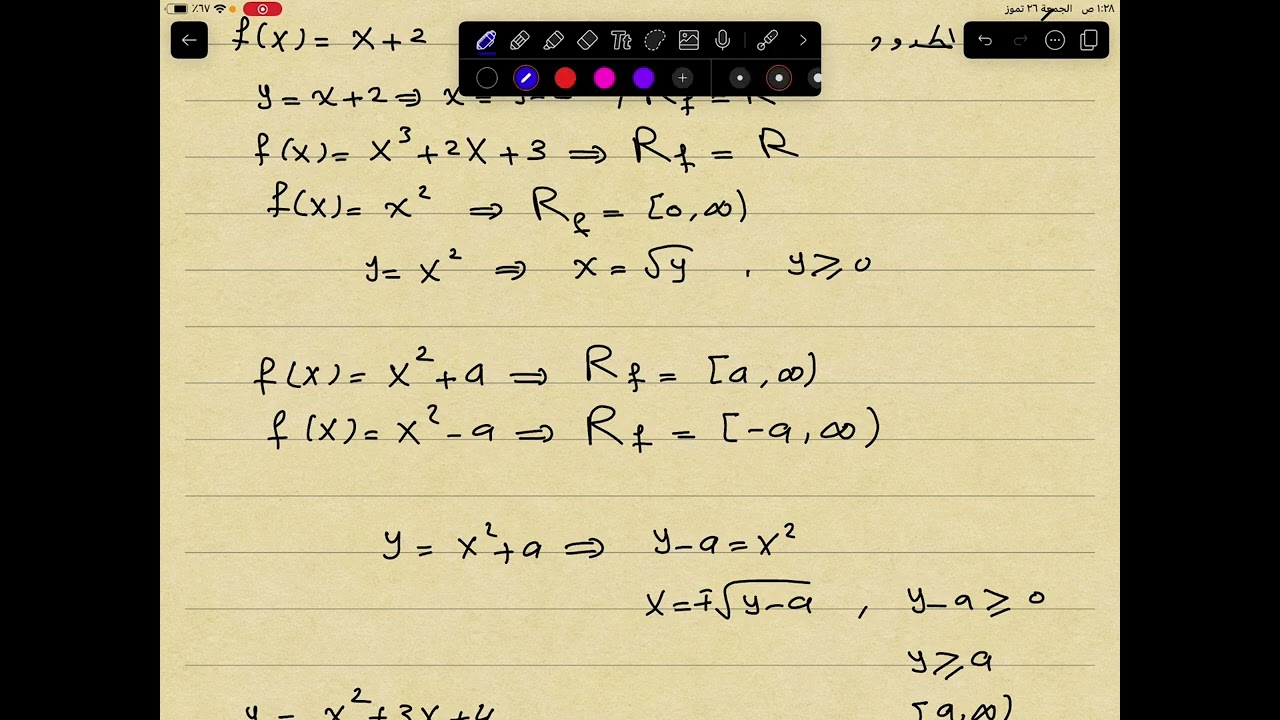 ١:٢٨ ص الجمعة ٢٦ تموز
٪٦٧
f(x) = x+2
Tt
y = x+2 ⇒ x =
R_f = R
f(x) = x³+2x+3 ⇒ R_f = R
f(x) = x² ⇒ R_f = [0,∞)
y = x² ⇒ x = √y , y ≥ 0
f(x) = x²+a ⇒ R_f = [a,∞)
f(x) = x²-a ⇒ R_f = [-a,∞)
y = x²+a ⇒ y-a = x²
x = ∓√(y-a) , y-a ≥ 0
y ≥ a
y = x²+3x+4 [a,∞)